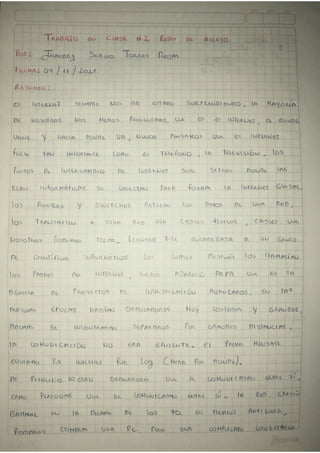 TRABAJO EN CLASE #2 REDES DE ACCESO
POR: SERGIO TORRES ROJAS
FECHA: 09/11/2021.
RESUMEN:
EL INTERNET SIEMPRE NOS HA ESTADO SORPRENDIENDO, LA MAYORIA
DE NOSOTROS NOS HEMOS PREGUNTADO, QUE ES EL INTERNET, DE DONDE
VIENE Y HACIA DONDE VA, NUNCA PENSAMOS QUE EL INTERNET
FUESE TAN IMPORTANTE COMO EL TELEFONO, LA TELEVISIÓN. LOS
PUNTOS DE INTERCAMBIO DE INTERNET SON SITIOS DONDE LAS
REDES INFORMATICAS SE CONECTAN PARA FORMAR LA INTERNET GLOBAL.
LOS ROUTERS Y SWITCHES LOS DATOS DE UNA RED,
LOS TRANSMITEN A OTRA RED VIA CABLES FISICOS, CABLES QUE
NOSOTROS PODEMOS TOCAR. LEONARD ENCABEZABA A UN GRUPO
DE CIENTIFICOS INFORMATICOS LOS CUALES DESPUES LOS LLAMARIAN
LOS PADRES DEL INTERNET, LUEGO APARECE ARPA QUE ES LA
AGENCIA DE PROYECTOS DE INVESTIGACIÓN AVANZADOS. EN LAS
ANTIGUAS ÉPOCAS HABIAN ORDENADORES MUY COSTOSOS Y GRANDES,
ADEMAS SE ENCONTRABAN SEPARADOS POR GRANDES DISTANCIAS,
LA COMUNICACIÓN NO ERA EXISTENTE. EL PRIMER MENSAJE
ENVIADO EN INTERNET FUE LOG (MIRA POR DONDE).
AL PRINCIPIO NO ERAN ORDENADORES QUE SE COMUNICABAN ENTRE SÍ,
ERAN PERSONAS QUE SE COMUNICABAN ENTRE SÍ. LA RED CRECIÓ
BASTANTE EN LA DECADA DE LOS 70. EN TIEMPOS ANTIGUOS,
PODIAMOS COMPRAR UNA PC PERO ERA COMPLICADO CONECTARLO